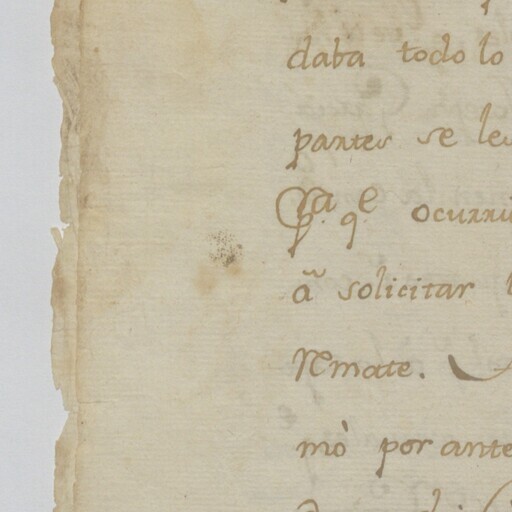 daba todo lo
partes se les
P.ª q.e ocurri
ã solicitar
remate.
mò por ante